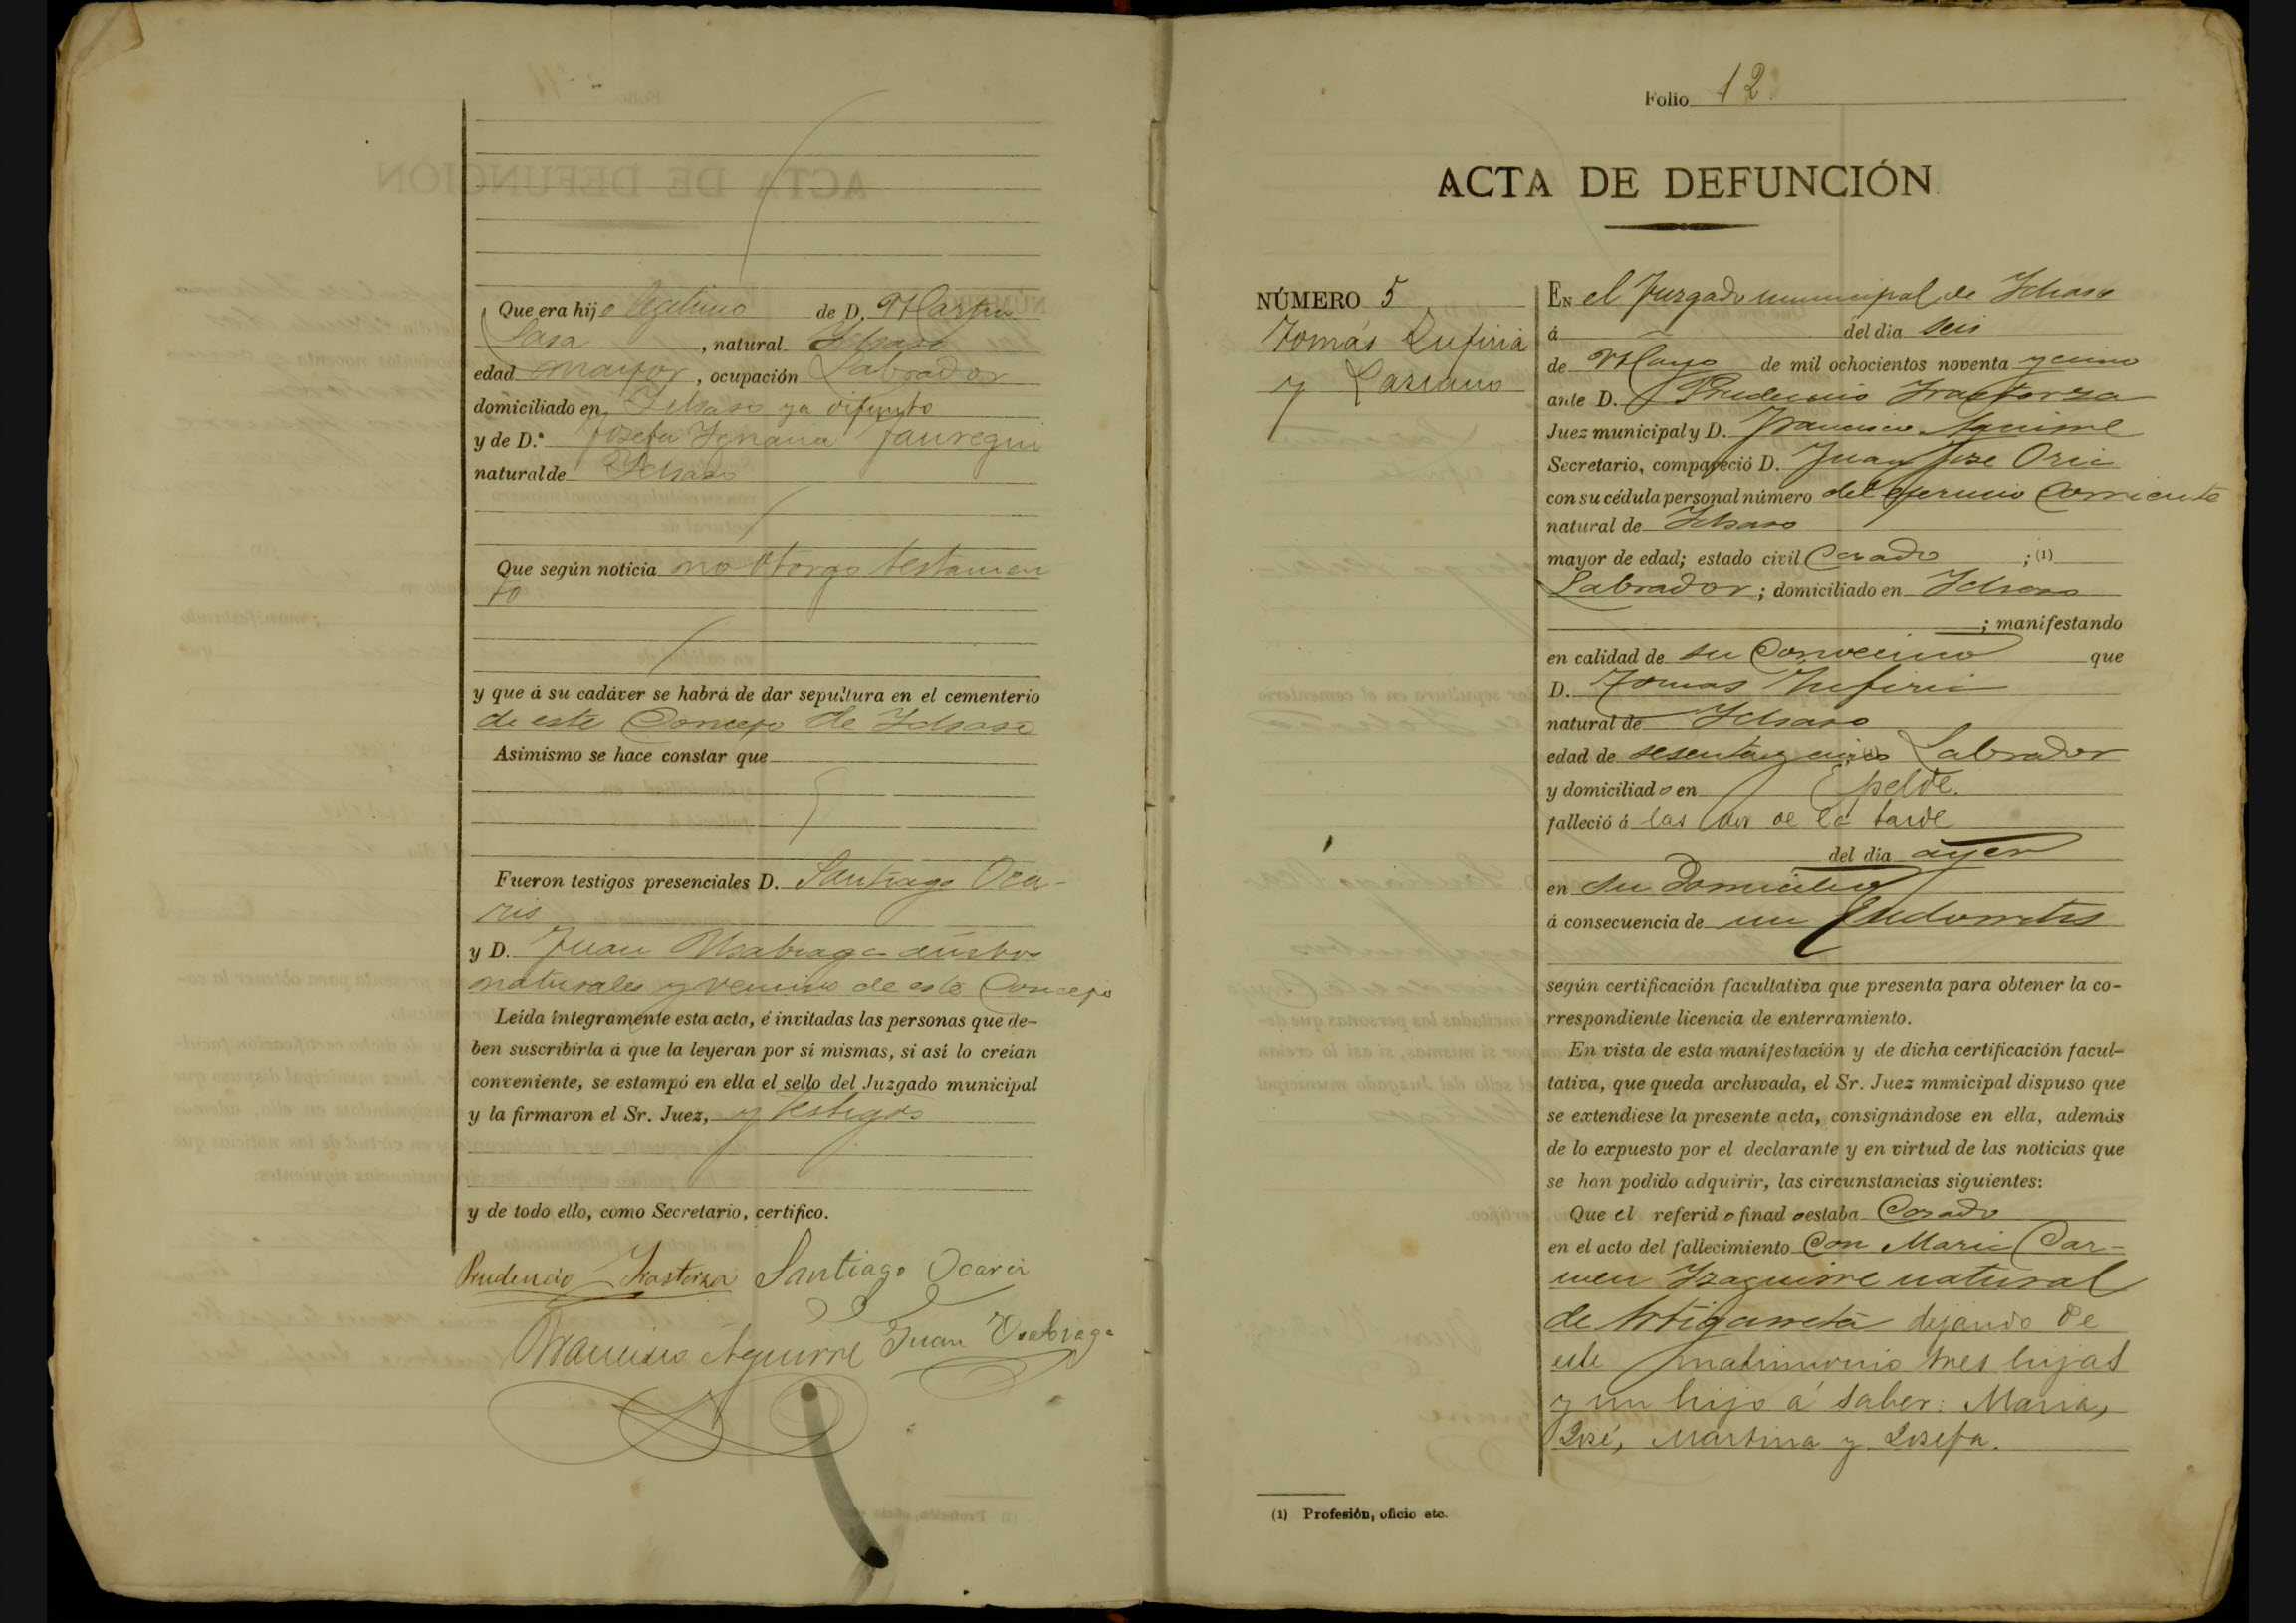 Que era hijo legitimo de D. Martin
Sasa, natural Ichaso
edad mayor, ocupación Labrador
domiciliado en Ichaso ya difunto
y de D.ª Josefa Ignacia Jauregui
natural de Ichaso
Que según noticia no otorgo testamen
to
y que á su cadáver se habrá de dar sepultura en el cementerio
de este Concejo de Ichaso
Asimismo se hace constar que
Fueron testigos presenciales D. Santiago Oca-
ris
y D. Juan Usabiaga ambos
naturales y vecinos de este Concejo
Leída íntegramente esta acta, é invitadas las personas que de-
ben suscribirla á que la leyeran por sí mismas, si así lo creían
conveniente, se estampó en ella el sello del Juzgado municipal
y la firmaron el Sr. Juez, y testigos
y de todo ello, como Secretario, certifico.
Prudencio Irastorza Santiago Ocariz
Francisco Aguirre Juan Usabiaga
Folio 12.
ACTA DE DEFUNCIÓN
NÚMERO 5
Tomás Zufiria
y
EN el Juzgado municipal de Ichaso
á del dia seis
de Mayo de mil ochocientos noventa y cinco
ante D. Prudencio Irastorza
Juez municipal y D. Francisco Aguirre
Secretario, compareció D. Juan Jose Oria
con su cédula personal número del ejercicio Corriente
natural de Ichaso
mayor de edad; estado civil Casado ; (1)
Labrador; domiciliado en Ichaso
; manifestando
en calidad de su Convecino que
D. Tomas Zufiria
natural de Ichaso
edad de sesenta y cinco Labrador
y domiciliado en Epelde.
falleció á las dos de la tarde
del dia ayer
en su Domicilio
á consecuencia de un
según certificación facultativa que presenta para obtener la co-
rrespondiente licencia de enterramiento.
En vista de esta manifestación y de dicha certificación facul-
tativa, que queda archivada, el Sr. Juez municipal dispuso que
se extendiese la presente acta, consignándose en ella, además
de lo expuesto por el declarante y en virtud de las noticias que
se han podido adquirir, las circunstancias siguientes:
Que el referido finado estaba Casado
en el acto del fallecimiento Con Maria Car-
men Izaguirre natural
de Astigarreta dejando de
este matrimonio tres hijas
y un hijo á saber: Maria,
José, Martina y Josefa.
(1) Profesión, oficio etc.